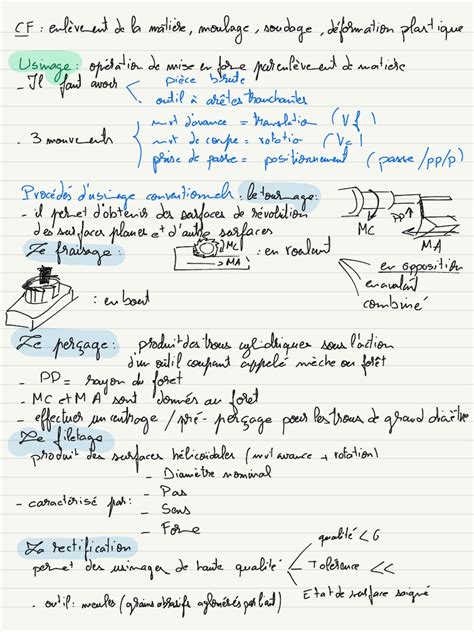 CF : enlèvement de la matière, moulage, soudage, déformation plastique
Usinage : opération de mise en forme par enlèvement de matière
- Il faut avoir
pièce brute
outil à arêtes tranchantes
. 3 mouvements
mvt d'avance = translation (Vf)
mvt de coupe = rotation (Vc)
prise de passe = positionnement (passe/pp/p)
Procédés d'usinage conventionnels : le tournage :
- il permet d'obtenir des surfaces de révolution
des surfaces planes et d'autre surfaces
MC
PP
MA
Le fraisage :
MC
MA
: en roulant
en opposition
en avalant
combiné
: en bout
Le perçage : produit des trous cylindriques sous l'action
d'un outil coupant appelé mèche ou forêt
- PP = rayon du foret
- MC et MA sont donnés au foret
- effectuer un centrage / pré-perçage pour les trous de grand diamètre
Le filetage
produit des surfaces hélicoïdales (mvt avance + rotation)
- caractérisé par :
- Diamètre nominal
- Pas
- Sens
- Forme
La rectification
permet des usinages de haute qualité
qualité < 6
Tolérence <<
Etat de surface soigné
. outil : meules (grains abrasifs aglomérés par liant)